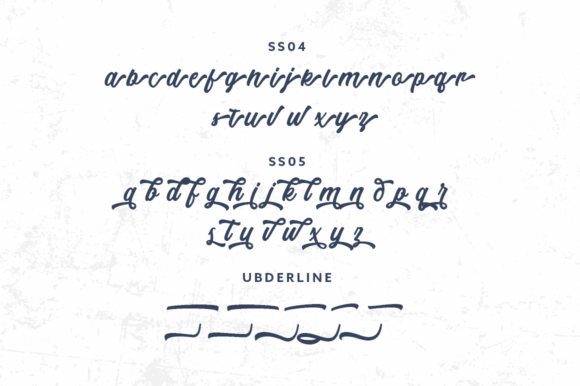 SS04
abcdefghijklmnopqr
stuvwxyz
SS05
abdfghijklmnopqr
stuvwxyz
UBDERLINE